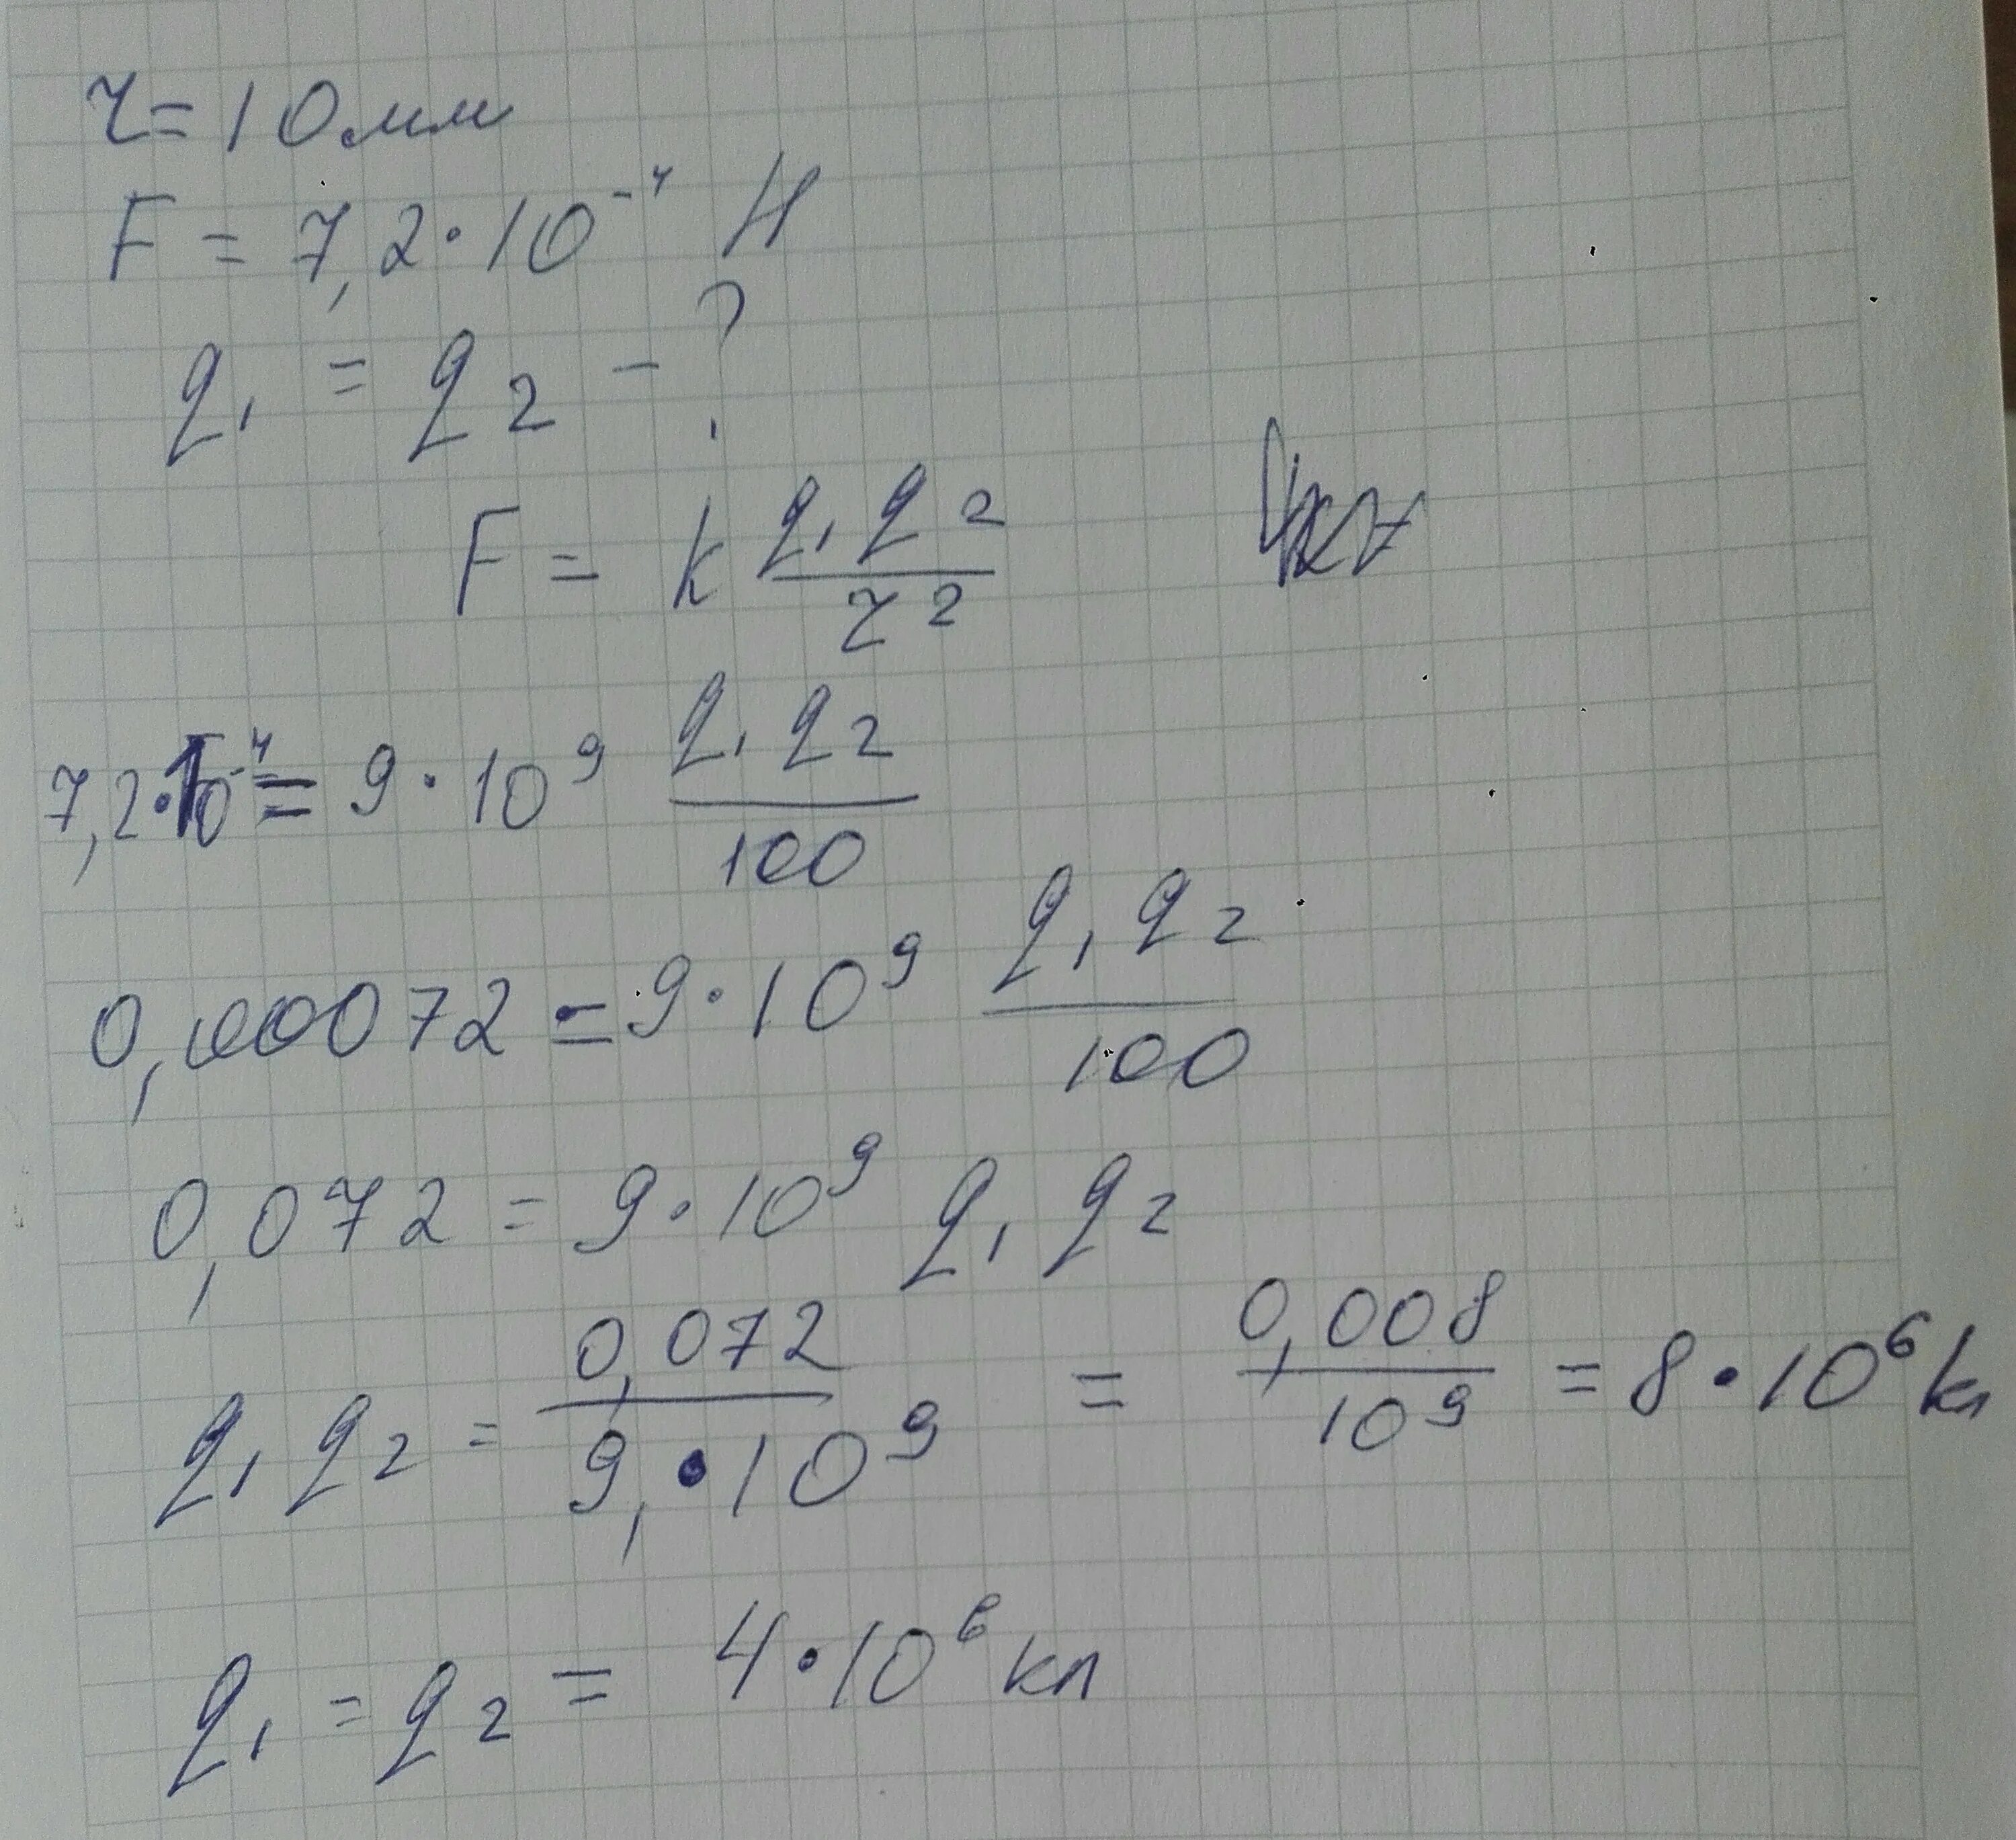 r = 10 мм
F = 7,2 · 10⁻⁴ Н
q₁ = q₂ - ?
F = k q₁ q₂ / r²
7,2 · 10⁻⁴ = 9 · 10⁹ q₁ q₂ / 100
0,00072 = 9 · 10⁹ q₁ q₂ / 100
0,072 = 9 · 10⁹ q₁ q₂
q₁ q₂ = 0,072 / 9, · 10⁹ = 0,008 / 10⁹ = 8 · 10⁶ кл
q₁ = q₂ = 4 · 10⁶ кл